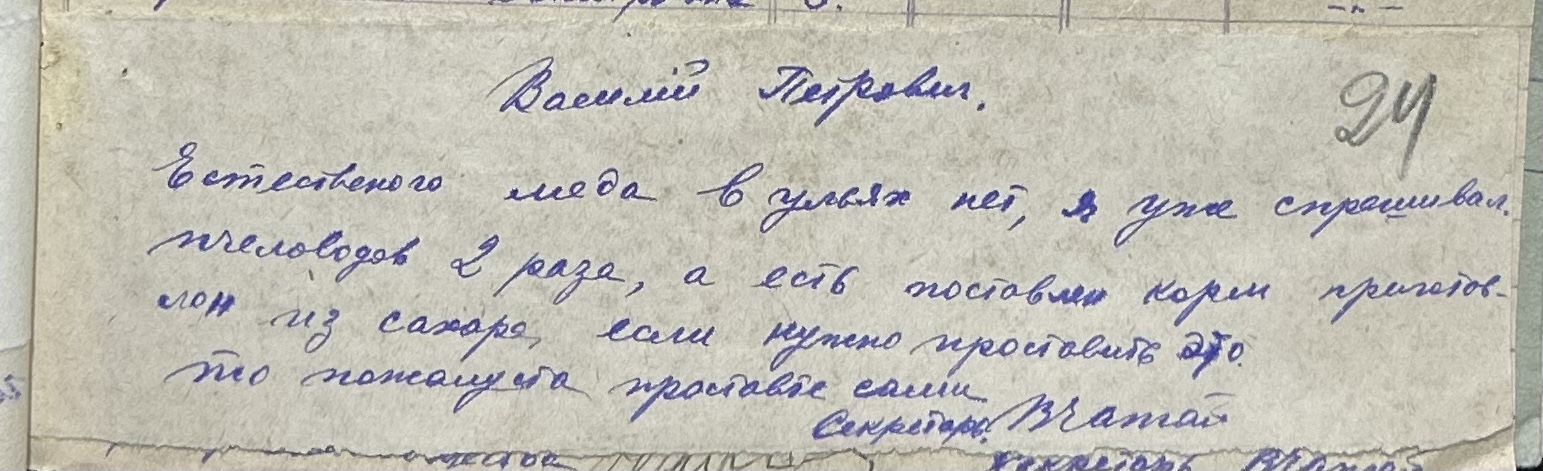 Василий Петрович.
24
Естественого меда в ульях нет, я уже спрашивал.
пчеловодов 2 раза, а есть поставлен корм приготов-
лон из сахара, если нужно проставить это
то пожалуста проставте сами
Секретарь
секретарь